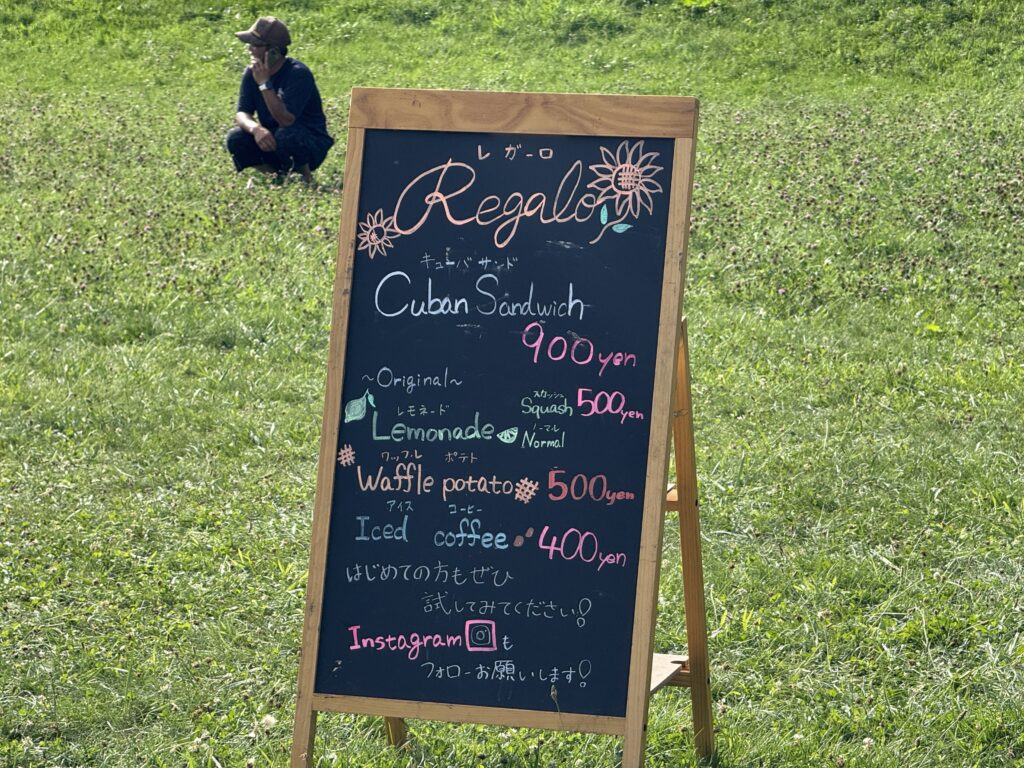 レガーロ
Regalo
キューバサンド
Cuban Sandwich
900yen
~Original~
レモネード
Lemonade
スカッシュ
Squash 500yen
ノーマル
Normal
ワッフル ポテト
Waffle potato 500yen
アイス コーヒー
Iced coffee 400yen
はじめての方もぜひ
試してみてください!
Instagram も
フォローお願いします!